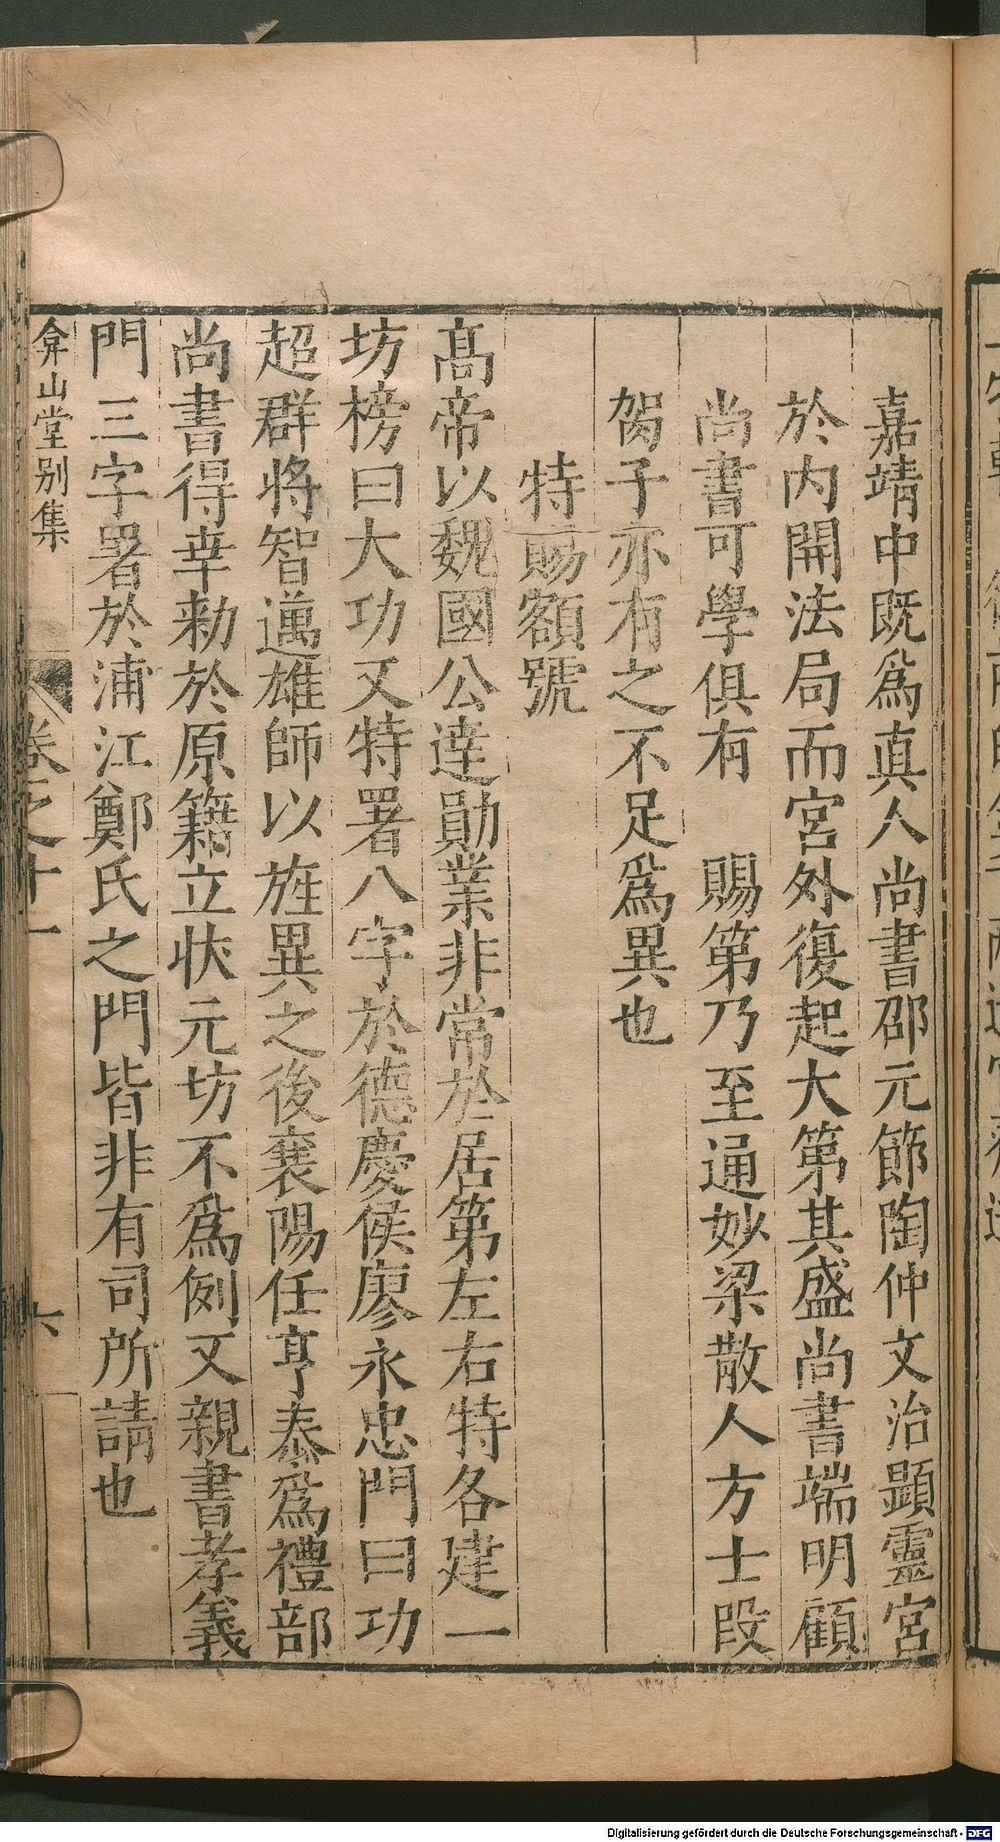 嘉靖中既爲真人尚書邵元節陶仲文治顯靈宮
於内開法局而宮外復起大第其盛尚書端明顧
尚書可學俱有　賜第乃至通妙梁散人方士段
朶子亦有之不足爲異也
特賜額號
髙帝以魏國公達勛業非常於居第左右特各建一
坊榜曰大功又特署八字於德慶侯廖永忠門曰功
超群将智邁雄師以旌異之後襄陽任亨泰爲禮部
尚書得幸勅於原籍立状元坊不爲例又親書孝義
門三字署於浦江鄭氏之門皆非有司所請也
弇山堂别集
卷之十一
六
Digitalisierung gefördert durch die Deutsche Forschungsgemeinschaft - DFG